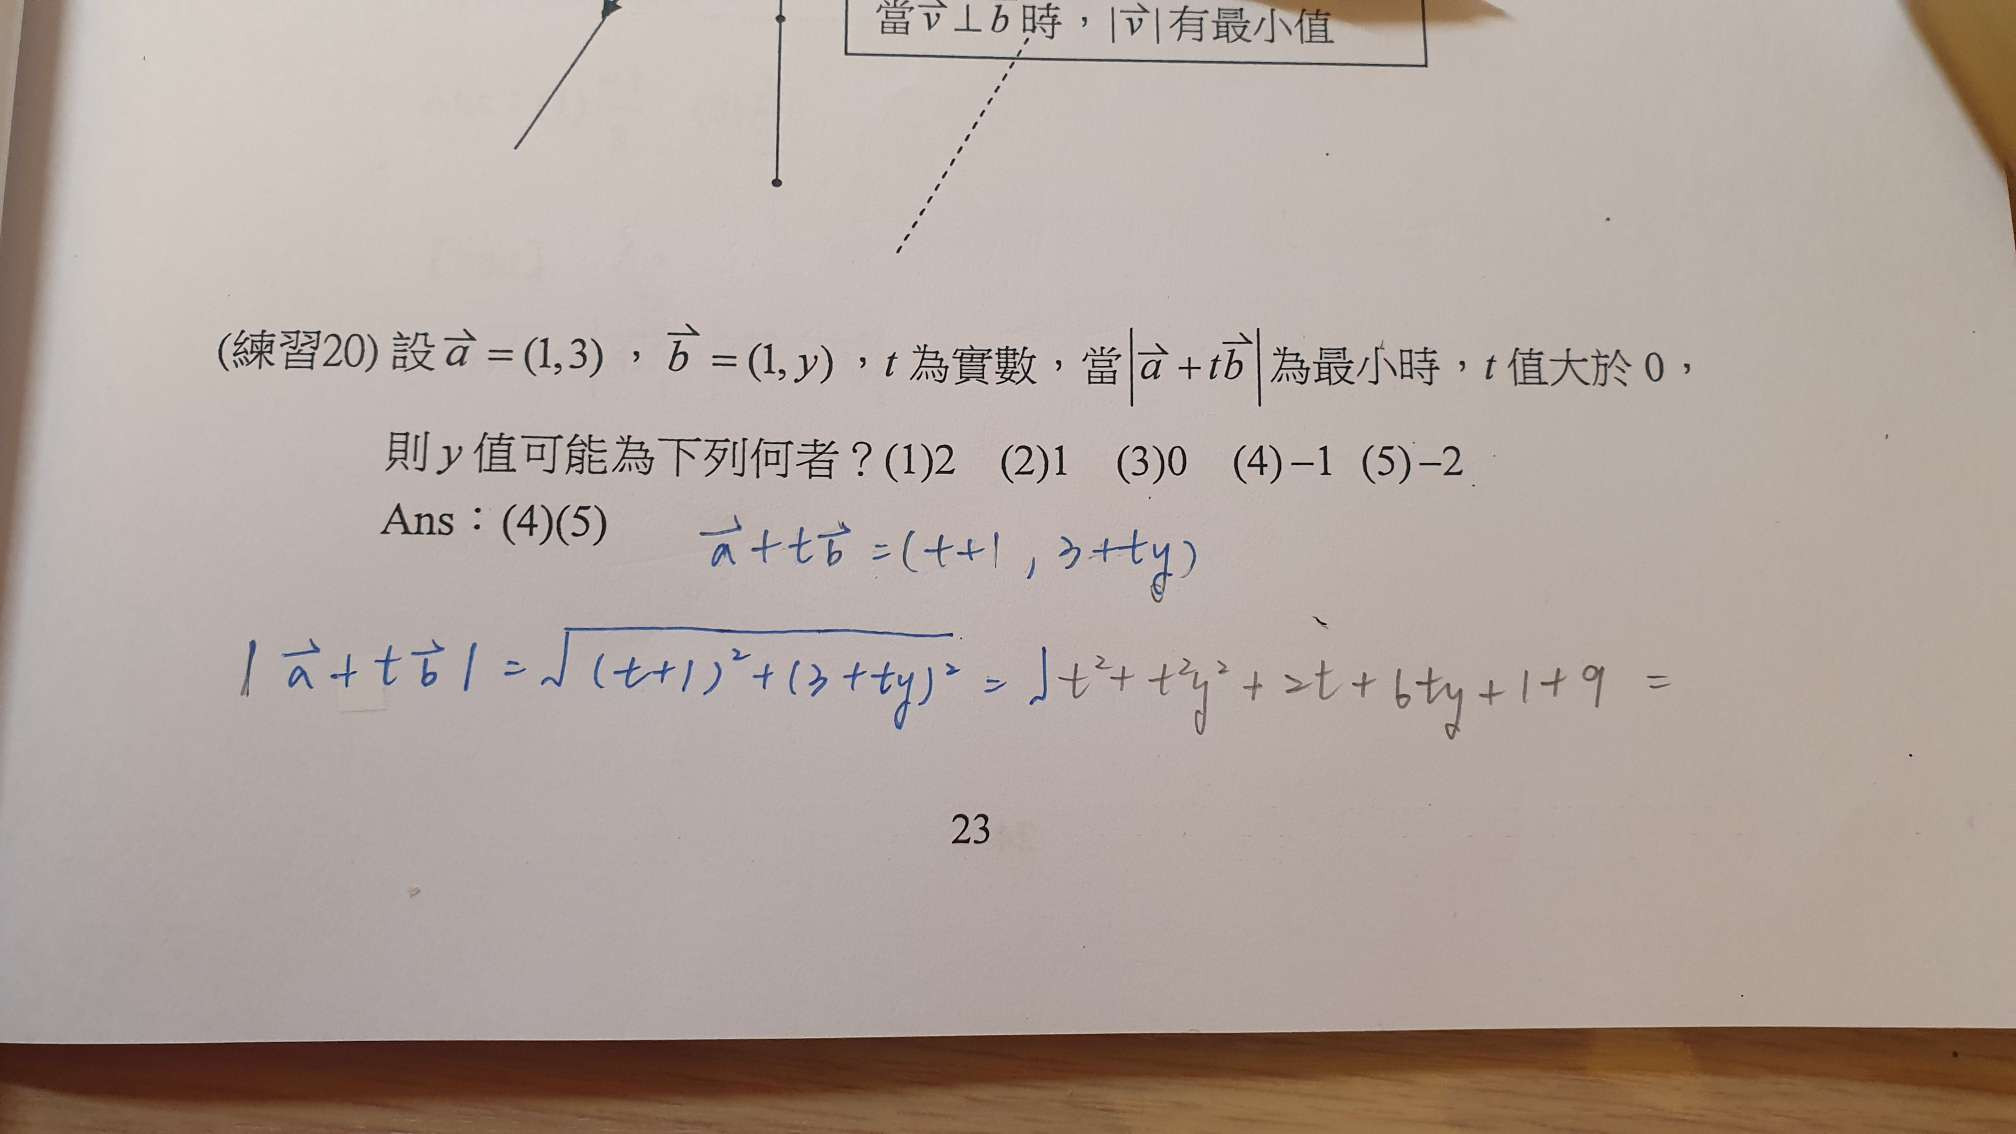 當v⃗⊥b⃗時，|v⃗|有最小值
(練習20) 設a⃗=(1,3)，b⃗=(1,y)，t為實數，當|a⃗+tb⃗|為最小時，t值大於0，
則y值可能為下列何者？(1)2 (2)1 (3)0 (4)−1 (5)−2
Ans：(4)(5)
a⃗+tb⃗=(t+1, 3+ty)
|a⃗+tb⃗|=√(t+1)²+(3+ty)² = √t²+t²y²+2t+6ty+1+9 =
23